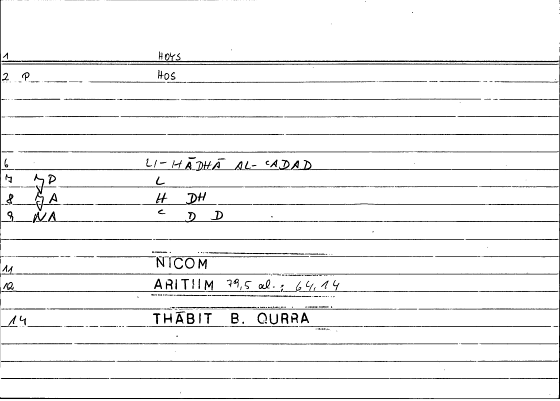 1 HOYS
2 P HOS
6 LI-HĀDHĀ AL-ʿADAD
7 P L
8 A H DH
9 NA ʿ D D
11 NICOM
12 ARITIIM 79,5 al.; 64,14
14 THĀBIT B. QURRA